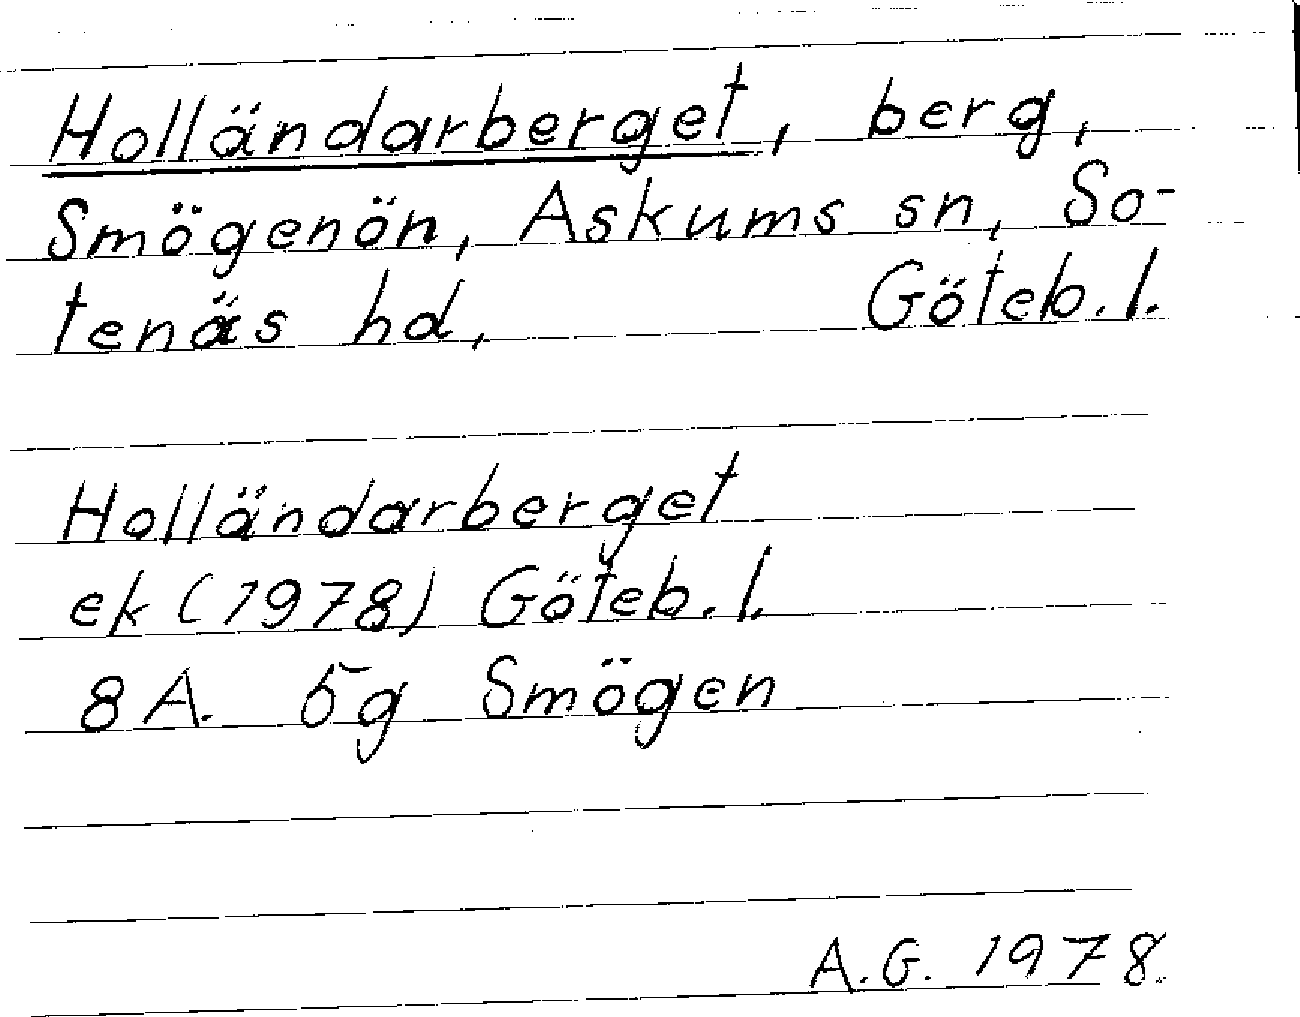 Holländarberget, berg,
Smögenön, Askums sn, So-
tenäs hd, Göteb. l.
Holländarberget
ek (1978) Göteb. l.
8A. 5g Smögen
A.G. 1978.